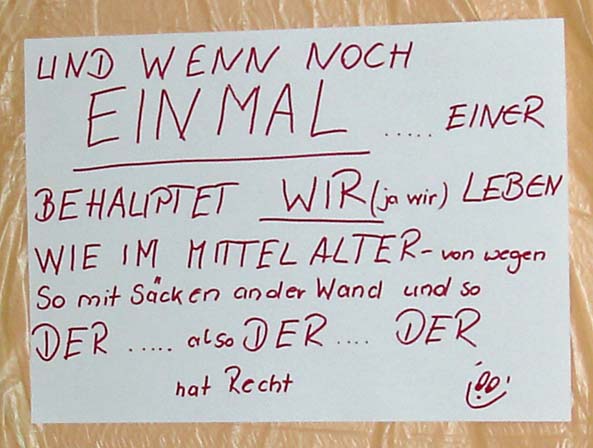 UND WENN NOCH
EINMAL ..... EINER
BEHAUPTET WIR (ja wir) LEBEN
WIE IM MITTELALTER - von wegen
So mit Säcken an der Wand und so
DER ..... also DER .... DER
hat Recht